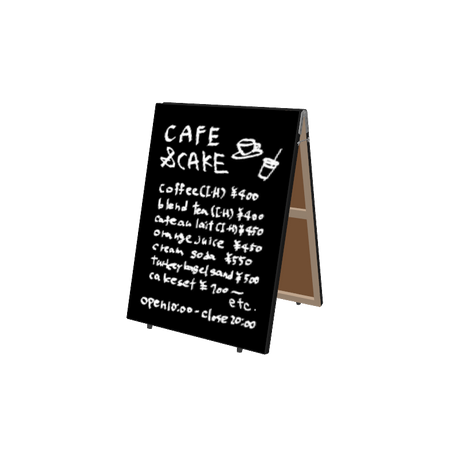 CAFE
&CAKE
coffee(I・H) ¥400
blend tea(I・H) ¥400
cafe au lait(I・H) ¥450
orange juice ¥450
cream soda ¥550
turkey bagel sand ¥500
cake set ¥700〜
etc.
open10:00-close20:00